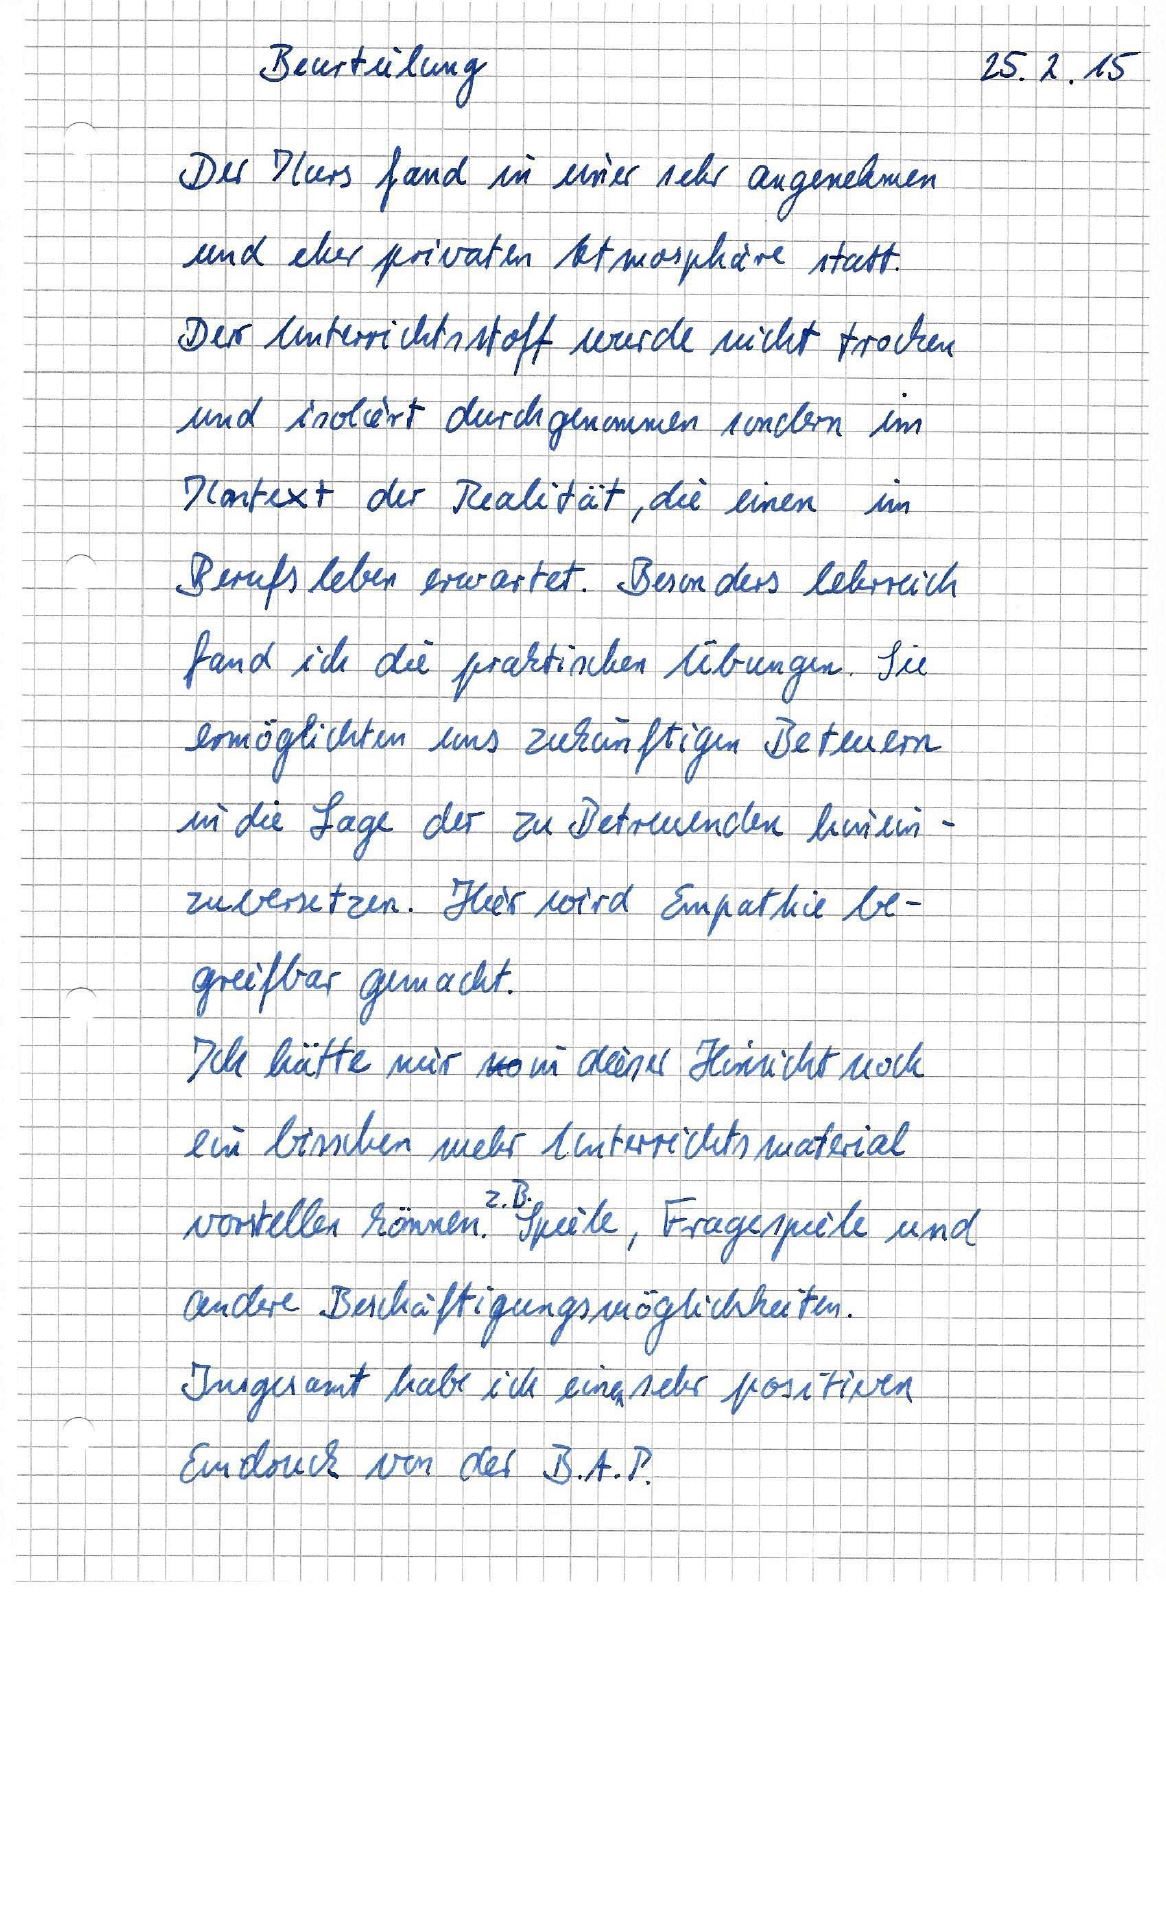 Beurteilung 25.2.15
Der Kurs fand in einer sehr angenehmen
und eher privaten Atmosphäre statt.
Der Unterrichtsstoff wurde nicht trocken
und isoliert durchgenommen sondern im
Kontext der Realität, die einen im
Berufsleben erwartet. Besonders lehrreich
fand ich die praktischen Übungen. Sie
ermöglichten uns zukünftigen Beteuern
in die Lage der zu Betreuenden hinein-
zuversetzen. Hier wird Empathie be-
greifbar gemacht.
Ich hätte mir in dieser Hinsicht noch
ein bisschen mehr Unterrichtsmaterial
vorstellen können. z.B. Spiele, Fragespiele und
andere Beschäftigungsmöglichkeiten.
Insgesamt habe ich einen sehr positiven
Eindruck von der B.A.P.